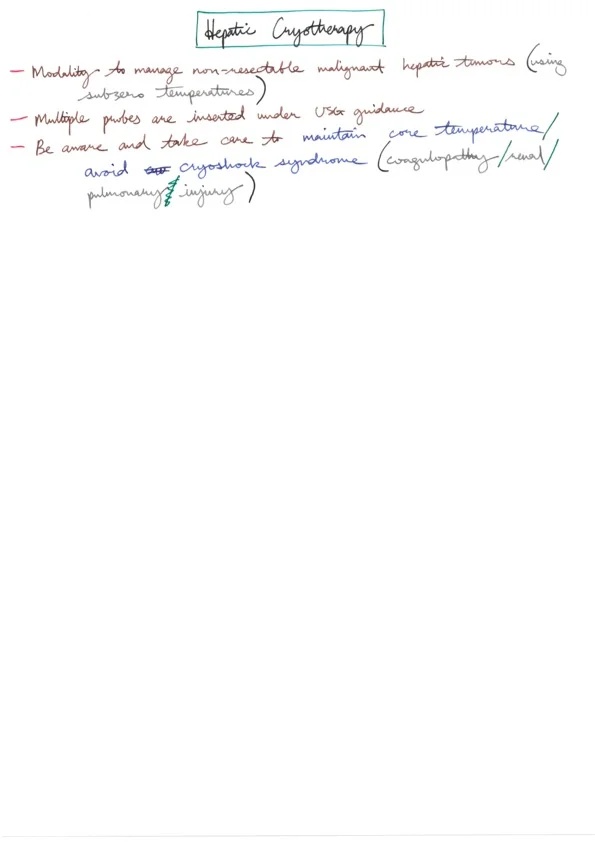 Hepatic Cryotherapy
- Modality to manage non-resectable malignant hepatic tumors (using
subzero temperatures)
- Multiple probes are inserted under USG guidance
- Be aware and take care to maintain core temperature/
avoid cryoshock syndrome (coagulopathy/renal/
pulmonary injury)